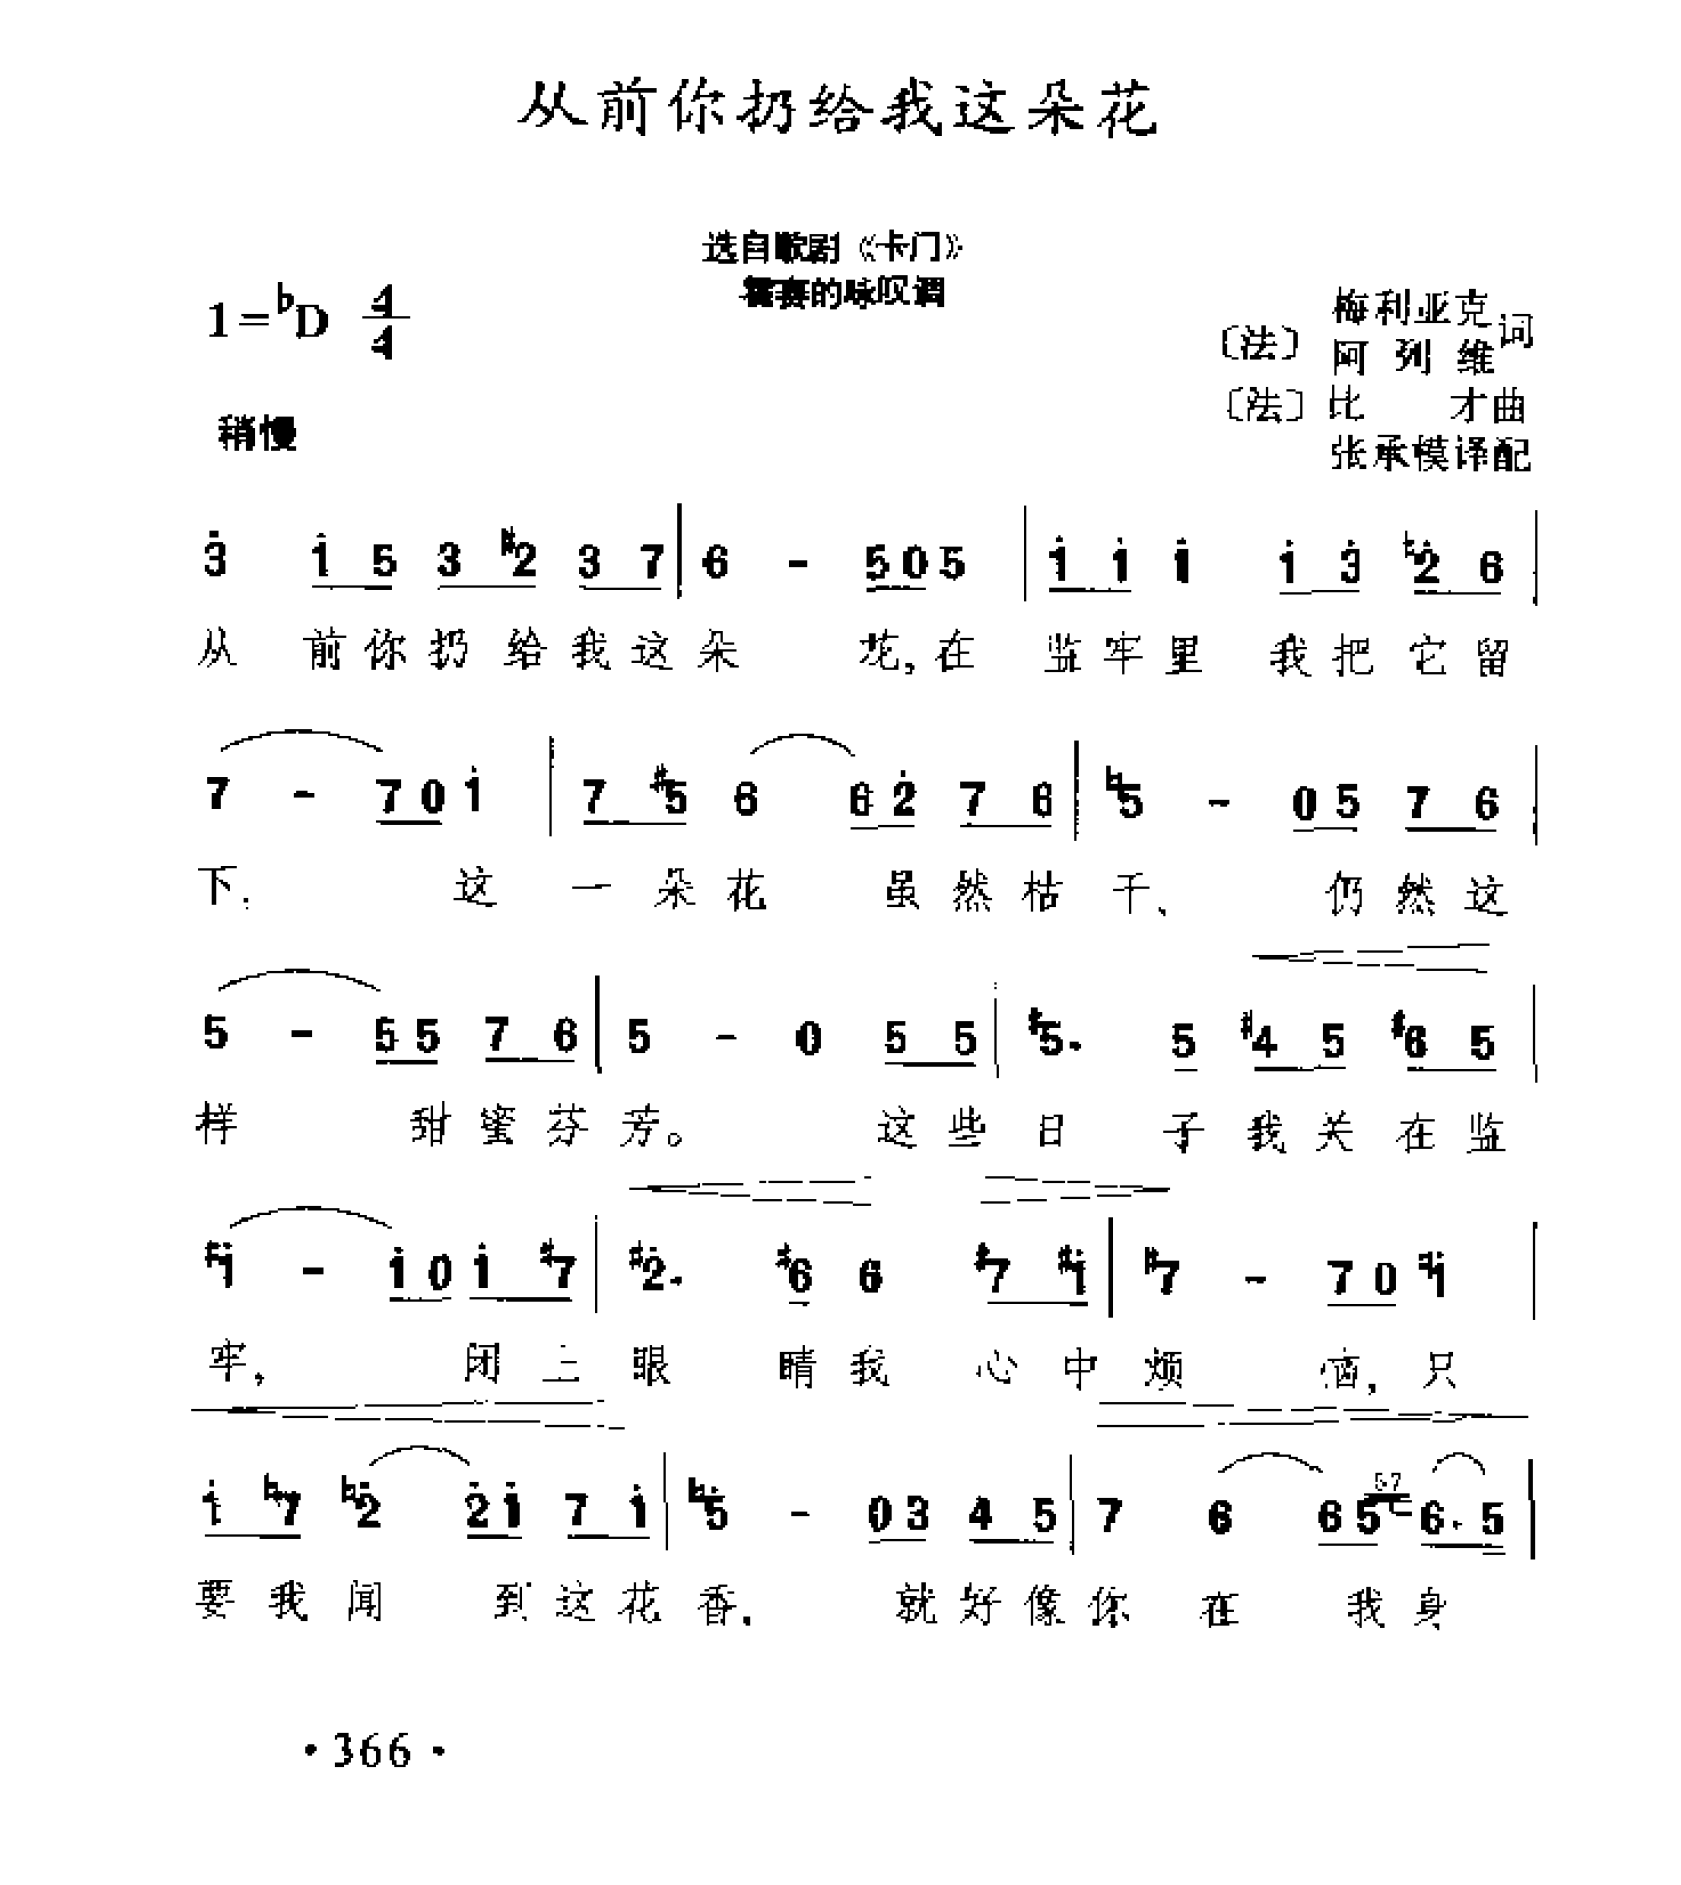 从前你扔给我这朵花
选自歌剧《卡门》
霍赛的咏叹调
1=♭D 4/4
〔法〕梅利亚克 阿列维词
〔法〕比才曲
张承模译配
稍慢
3̇ 1̇ 5 3 ♯2 3 7 | 6 - 5 0 5 | 1̇ 1̇ 1̇ 1̇ 3̇ ♮2̇ 6 |
从前你扔给我这朵花,在监牢里我把它留
7 - 7 0 1̇ | 7 ♯5 6 6 2̇ 7 6 | ♮5 - 0 5 7 6 |
下, 这一朵花虽然枯干、仍然这
5 - 5 5 7 6 | 5 - 0 5 5 | ♯5. 5 ♯4 5 ♯6 5 |
样甜蜜芬芳。这些日子我关在监
♯1̇ - 1̇ 0 1̇ ♯7 | ♯2̇. ♯6 6 ♯7 ♯1̇ | ♮7 - 7 0 ♯1̇ |
牢,闭上眼睛我心中烦恼,只
1̇ ♮7 ♮2̇ 2̇ 1̇ 7 1̇ | ♮5 - 0 3 4 5 | 7 6 6 5 57 6. 5 |
要我闻到这花香,就好像你在我身
·366·